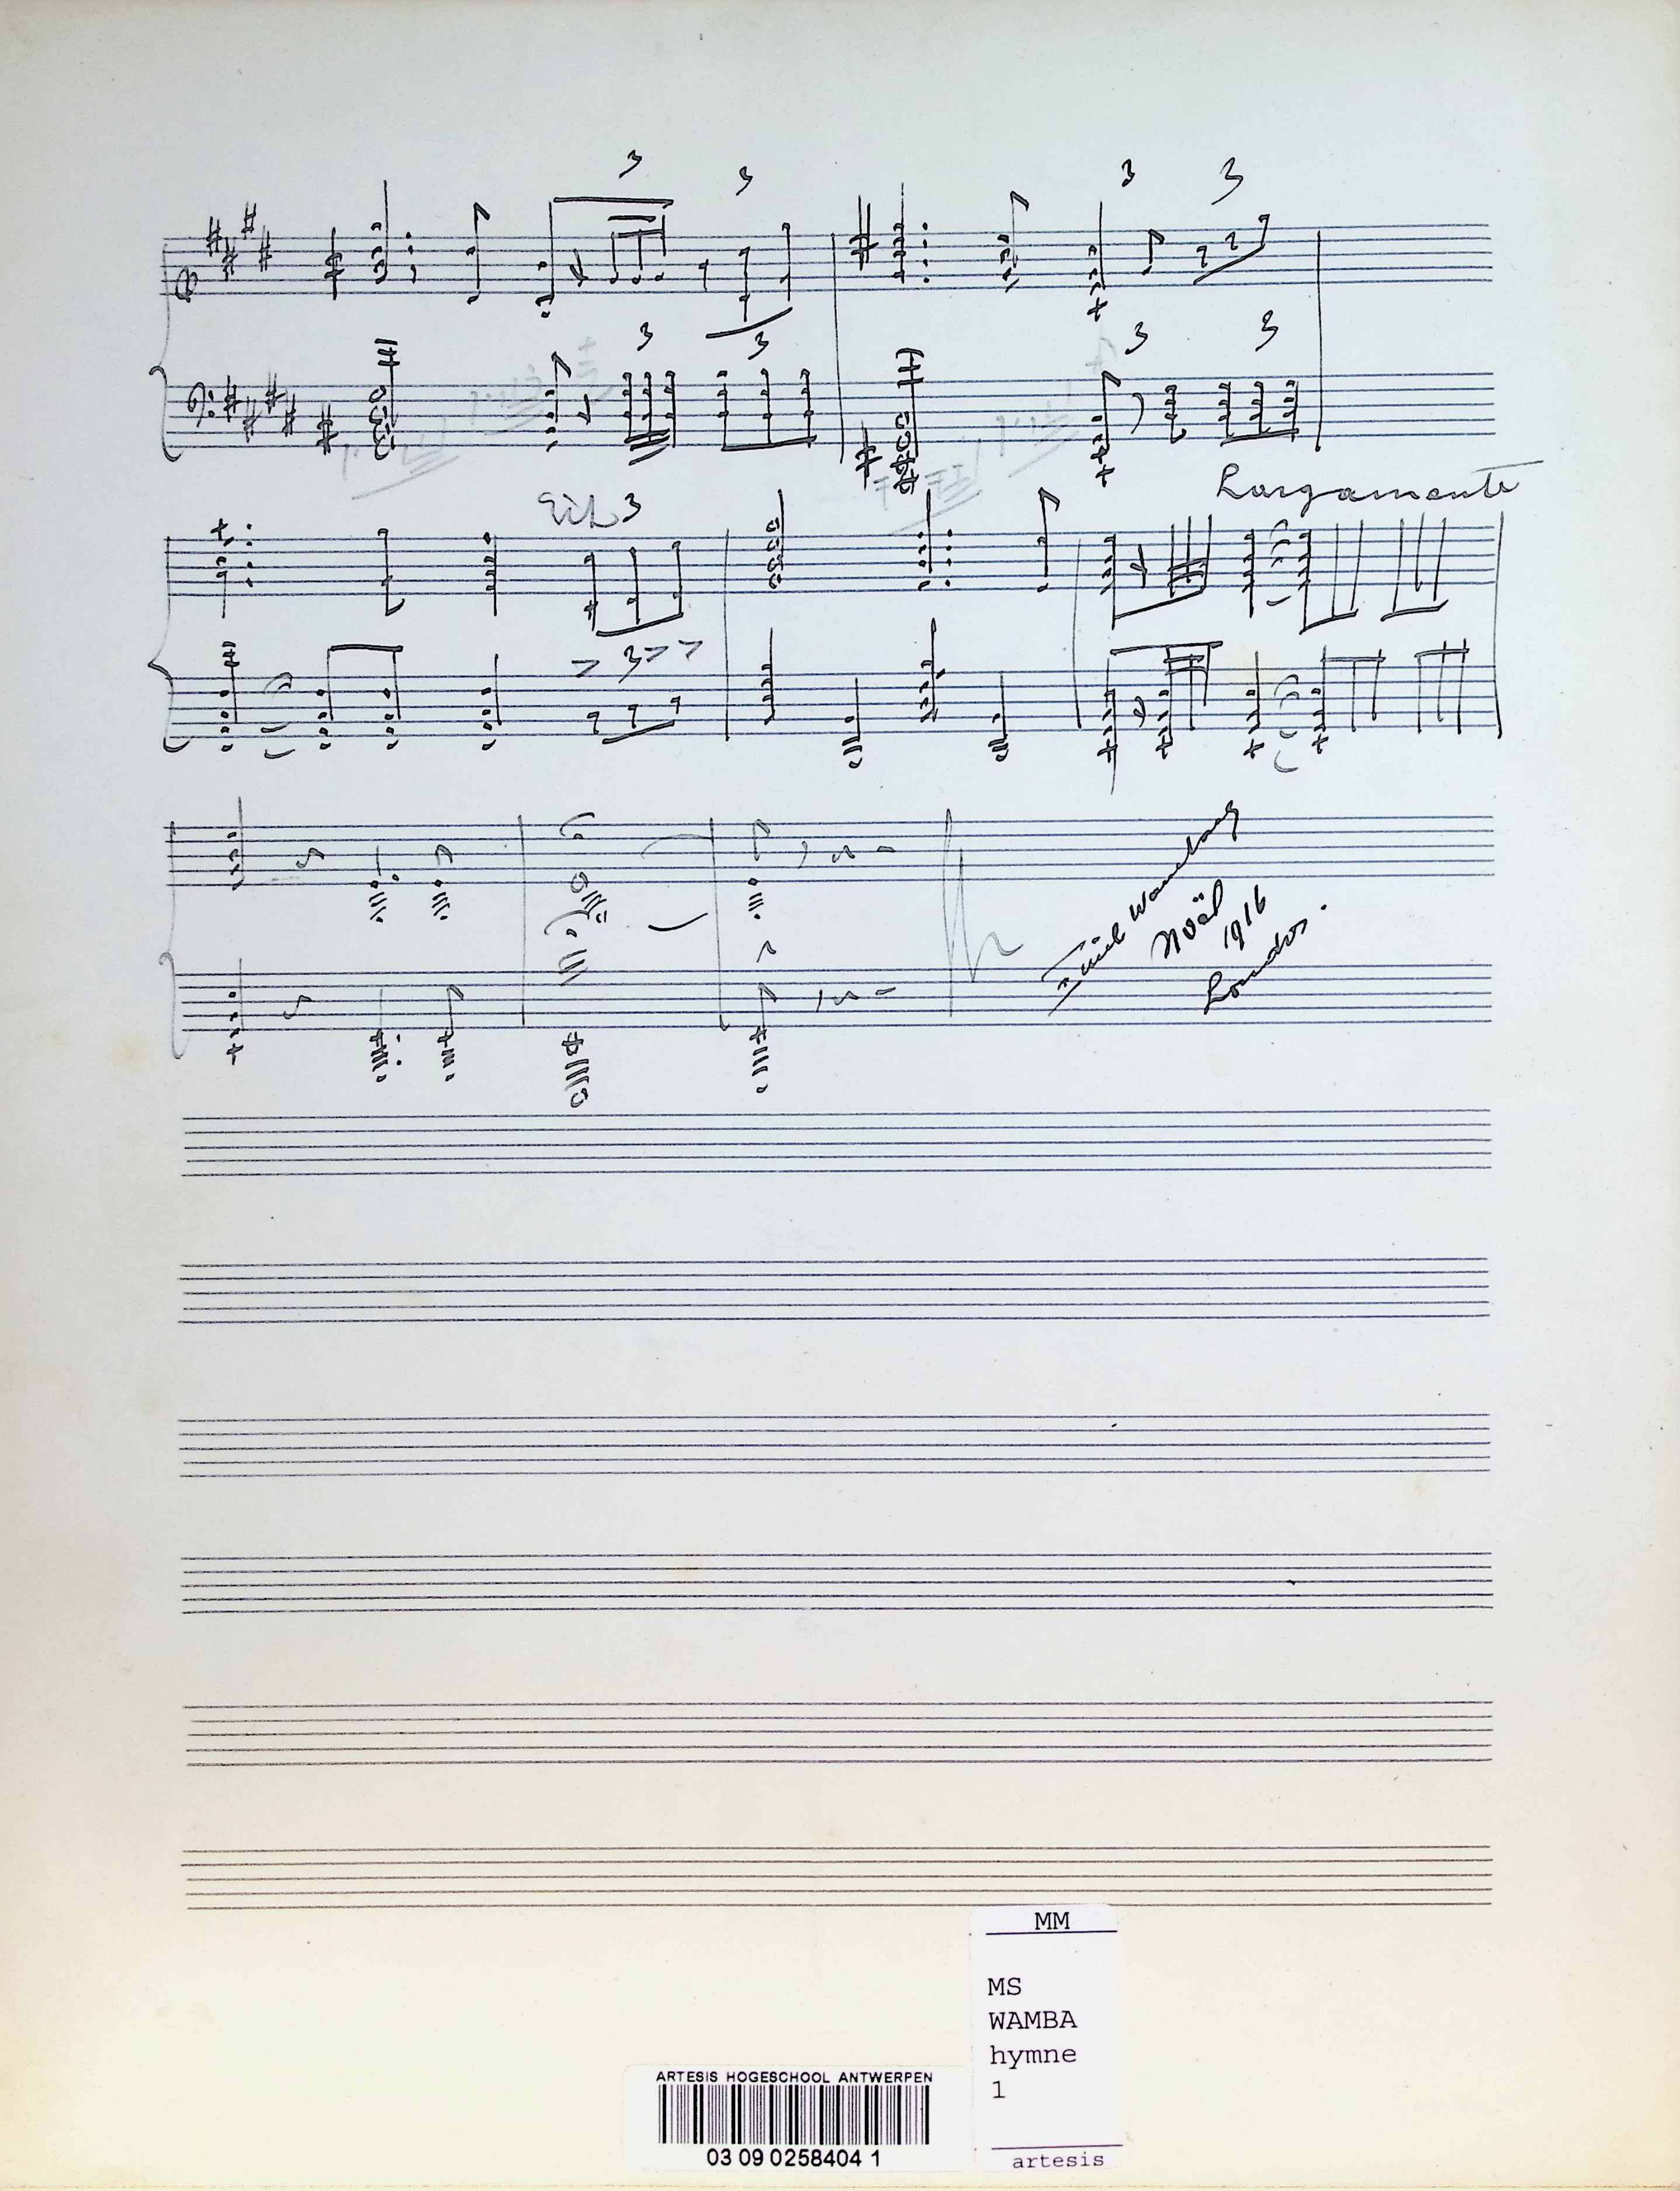 3 3 3 3
3 3 3 3
3 Largamente
3
Noël
1916
Londres.
MM
MS
WAMBA
hymne
1
artesis
ARTESIS HOGESCHOOL ANTWERPEN
03 09 0258404 1